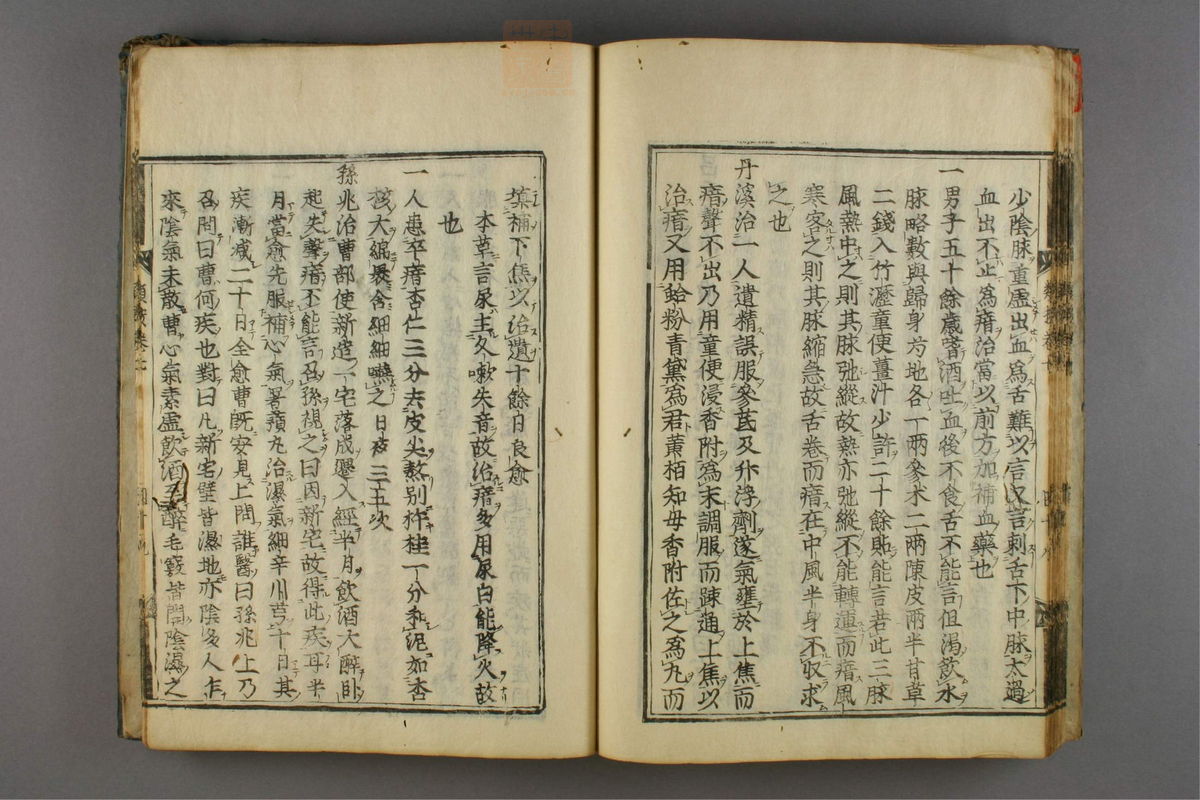 少陰脉重虛出血爲舌難以言又言刺舌下中脉太過
血出不止爲瘖治當以前方加補血藥也
一男子五十餘歲嗜酒吐血後不食舌不能言但渴飲水
脉略數與歸身芎地各一兩參朮二兩陳皮兩半甘草
二錢入竹瀝童便薑汁少許二十餘貼能言若此三脉
風熱中之則其脉弛縱故熱亦弛縱不能轉運而瘖風
寒客之則其脉縮急故舌卷而瘖在中風半身不収求
之也
丹溪治一人遺精誤服參芪及升浮劑遂氣壅於上焦而
瘖聲不出乃用童便浸香附爲末調服而踈通上焦以
治瘖又用蛤粉青黛爲君蘗栢知母香附佐之爲丸而
塡補下焦以治遺十餘日良愈
本草言尿主久嗽失音故治瘖多用尿白能降火故
也
一人患卒瘖杏仁三分去皮尖熬別杵桂一分和泥如杏
核大綿裹含細細嚥之日夜三五次
孫兆治曹部使新造一宅落成遷入經半月飲酒大醉臥
起失聲瘖不能言召孫視之曰因新宅故得此疾耳半
月當愈先服補心氣署蕷丸治濕氣細辛川芎十日其
疾漸减二十日全愈曹旣安見上問誰醫曰孫兆上乃
召問曰曹何疾也對曰凡新宅壁皆濕地亦陰多人乍
來陰氣未散曹心氣素虛飲酒至醉毛竅皆開陰濕之